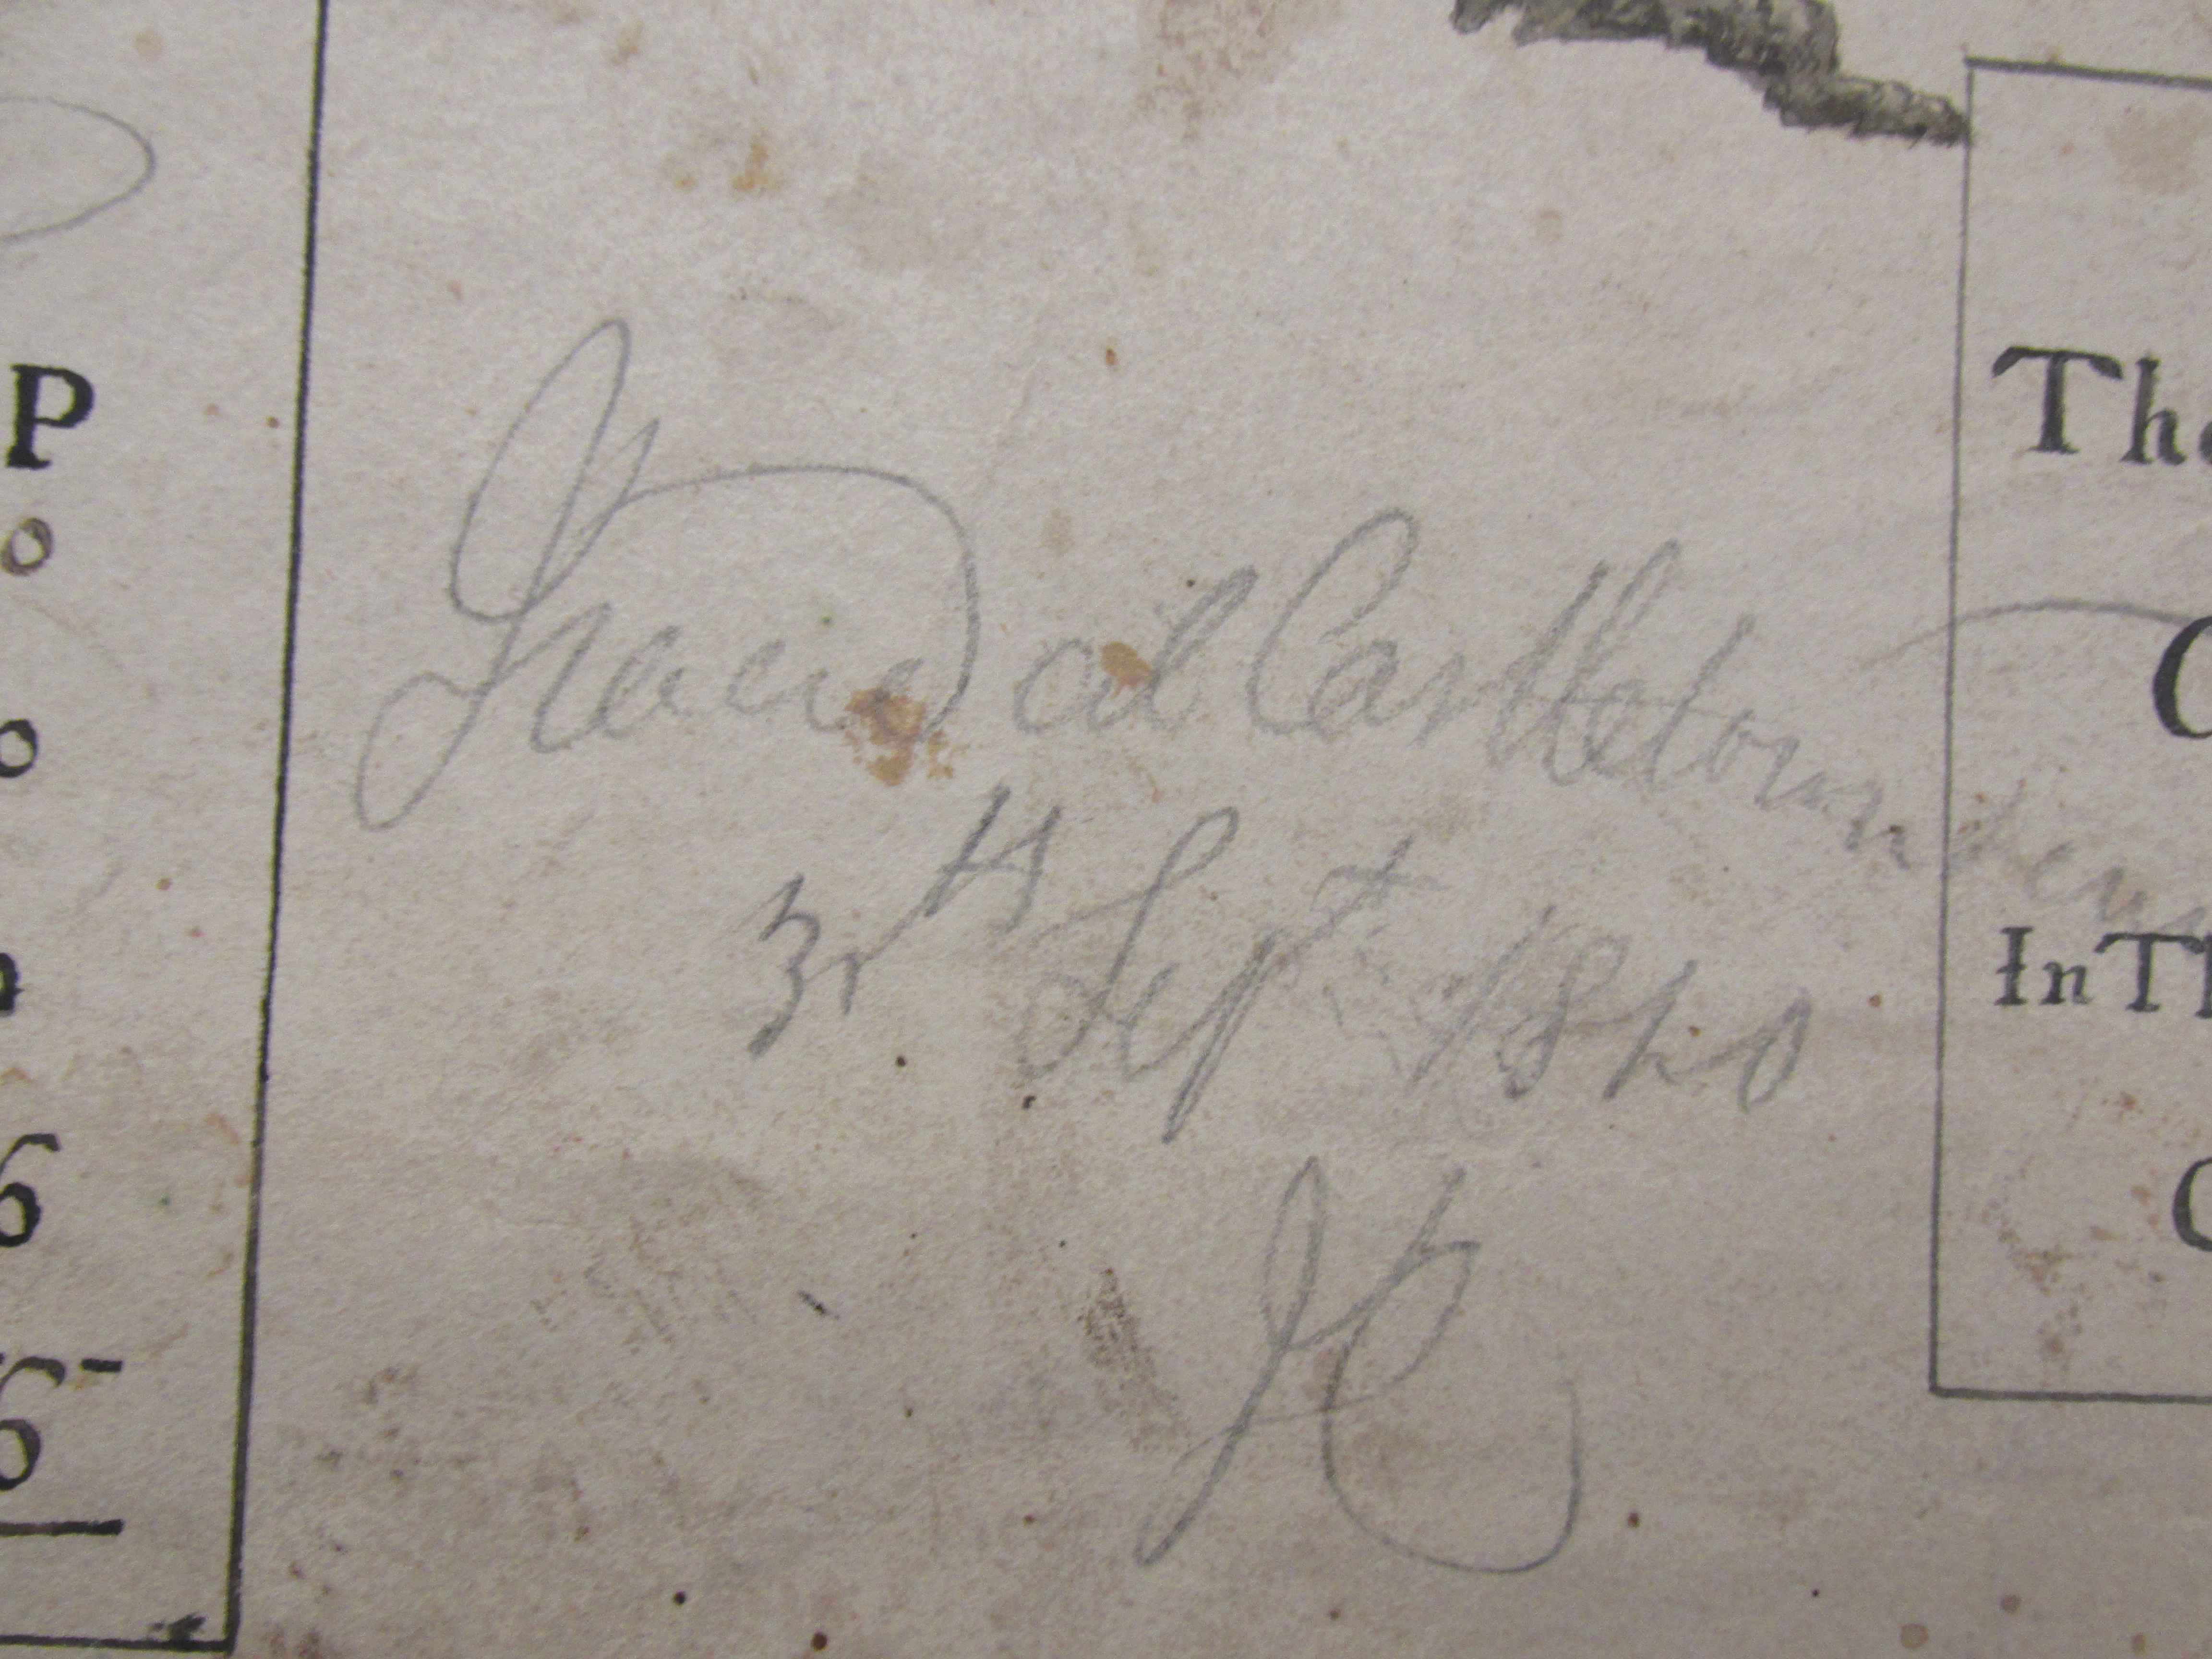 P
o
o
6
6
Traced at Castletownd
3rd Sept 1840
JC
The
C
In Th
C